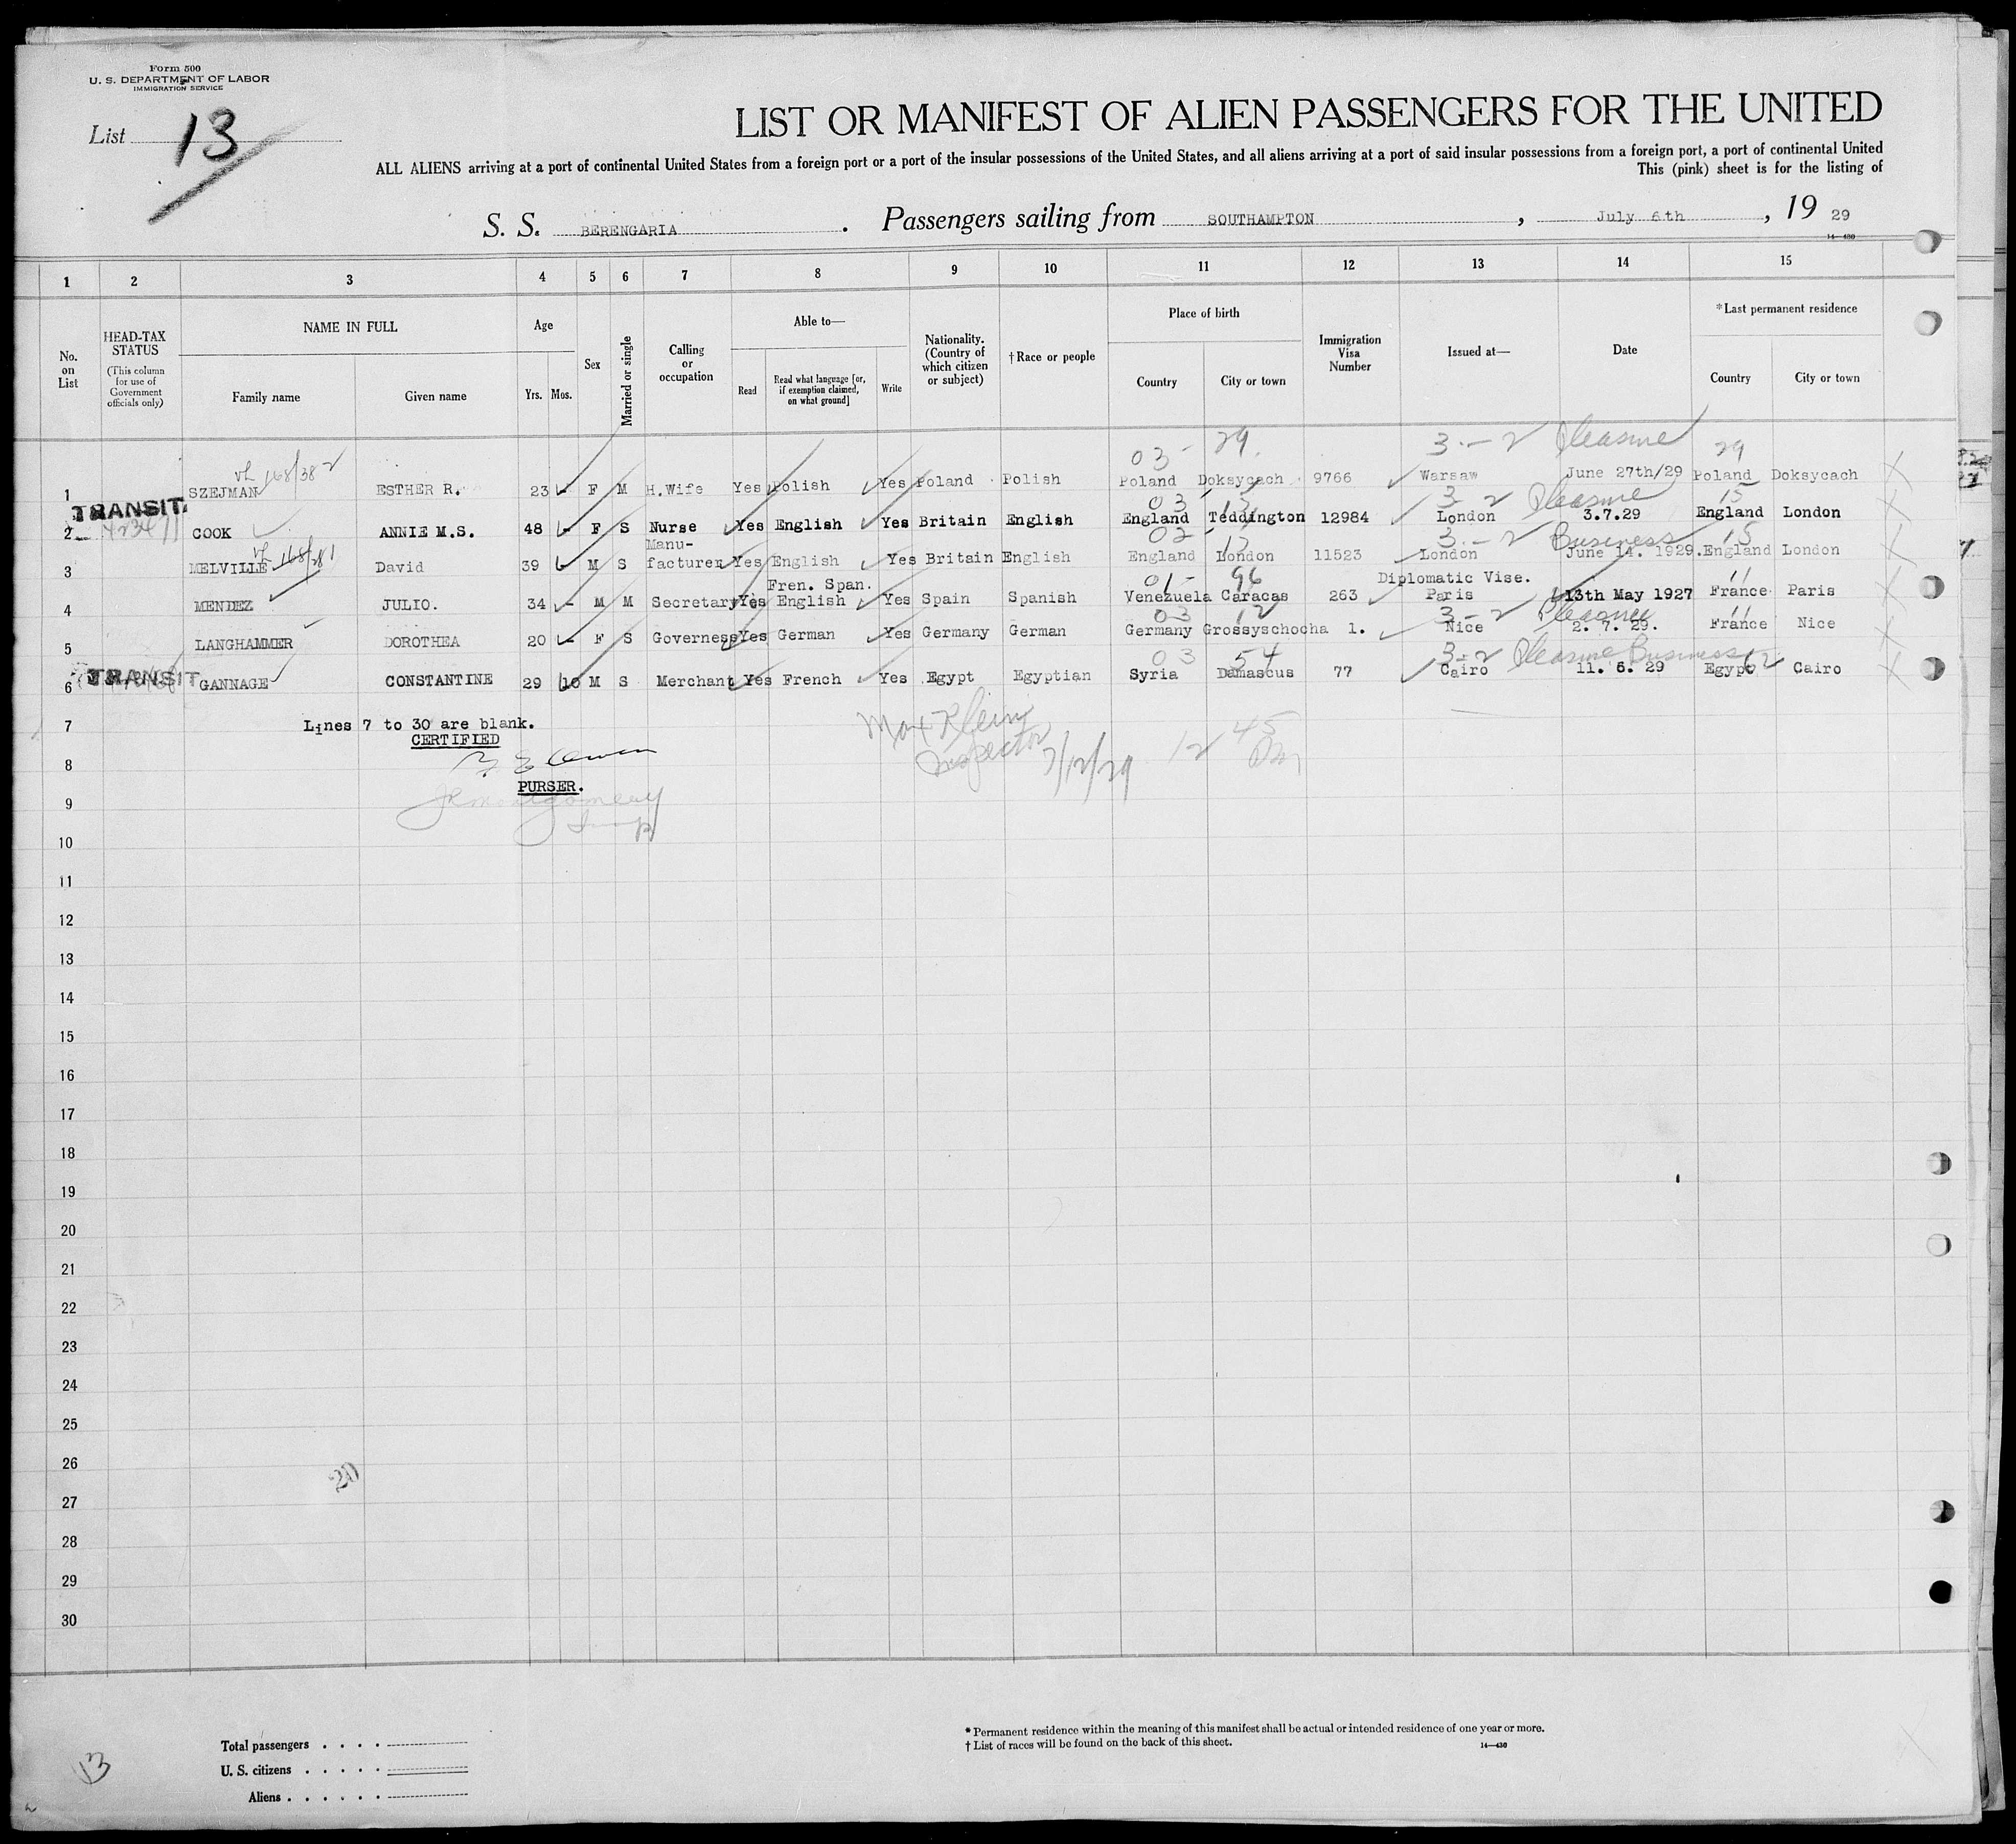 Form 500
U. S. DEPARTMENT OF LABOR
IMMIGRATION SERVICE
List 13
LIST OR MANIFEST OF ALIEN PASSENGERS FOR THE UNITED
ALL ALIENS arriving at a port of continental United States from a foreign port or a port of the insular possessions of the United States, and all aliens arriving at a port of said insular possessions from a foreign port, a port of continental United
This (pink) sheet is for the listing of
S. S. BERENGARIA . Passengers sailing from SOUTHAMPTON , July 6th , 19 29
14—430
1 2 3 4 5 6 7 8 9 10 11 12 13 14 15
No. on List
HEAD-TAX STATUS (This column for use of Government officials only)
NAME IN FULL Family name Given name
Age Yrs. Mos.
Sex
Married or single
Calling or occupation
Able to— Read Read what language [or, if exemption claimed, on what ground] Write
Nationality. (Country of which citizen or subject)
†Race or people
Place of birth Country City or town
Immigration Visa Number
Issued at—
Date
*Last permanent residence Country City or town
03 - 29. 3 - 2 Pleasure 29
168/382
1 SZEJMAN ESTHER R. 23 - F M H.Wife Yes Polish Yes Poland Polish Poland Doksycach 9766 Warsaw June 27th/29 Poland Doksycach
TRANSIT. 03 13 3 - 2 Pleasure 15
2 COOK ANNIE M.S. 48 - F S Nurse Yes English Yes Britain English England Teddington 12984 London 3.7.29 England London
168/281 Manu- 02 13 3 - 2 Business 15
3 MELVILLE David 39 - M S facturer Yes English Yes Britain English England London 11523 London June 14. 1929. England London
Fren. Span. 01 - 96 Diplomatic Vise. 11
4 MENDEZ JULIO. 34 - M M Secretary Yes English Yes Spain Spanish Venezuela Caracas 263 Paris 13th May 1927 France Paris
03 12 3 - 2 Pleasure 11
5 LANGHAMMER DOROTHEA 20 - F S Governess Yes German Yes Germany German Germany Grossyschocha 1. Nice 2. 7. 29. France Nice
TRANSIT 03 54 3 - 2 Pleasure Business 62
6 GANNAGE CONSTANTINE 29 10 M S Merchant Yes French Yes Egypt Egyptian Syria Damascus 77 Cairo 11. 6. 29 Egypt Cairo
7 Lines 7 to 30 are blank.
CERTIFIED
Max Klein
Inspector 7/12/29 12 45 Pm
8
PURSER.
9 JR Montgomery
10
11
12
13
14
15
16
17
18
19
20
21
22
23
24
25
26
20
27
28
29
30
Total passengers . . . .
U. S. citizens . . . . .
Aliens . . . . . .
13
* Permanent residence within the meaning of this manifest shall be actual or intended residence of one year or more.
† List of races will be found on the back of this sheet.
14—430